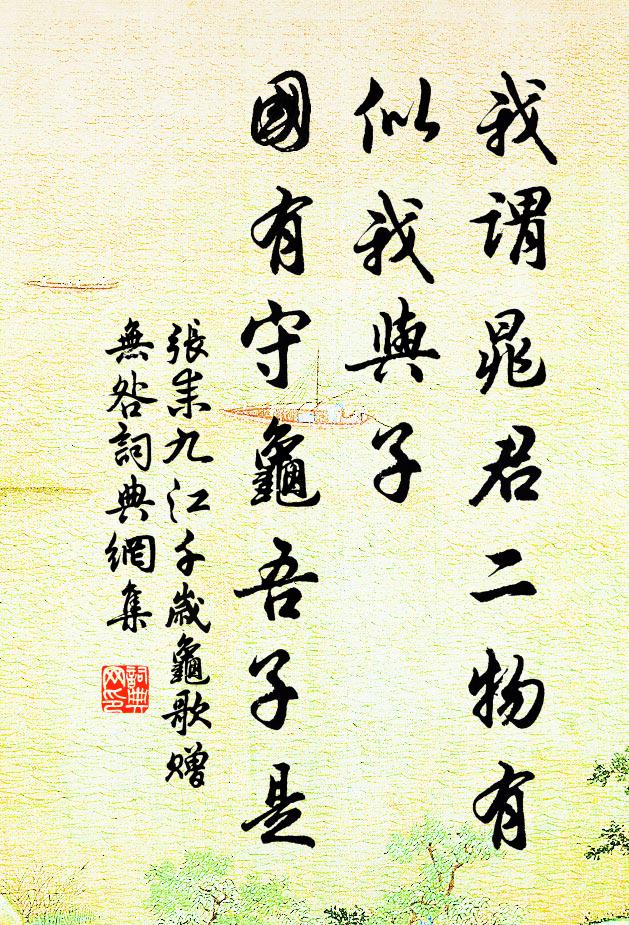 我謂晁君二物有
似我與子
國有守龜吾子是
張耒九江千歲龜歌贈
無咎詞典網集
詞典
网印